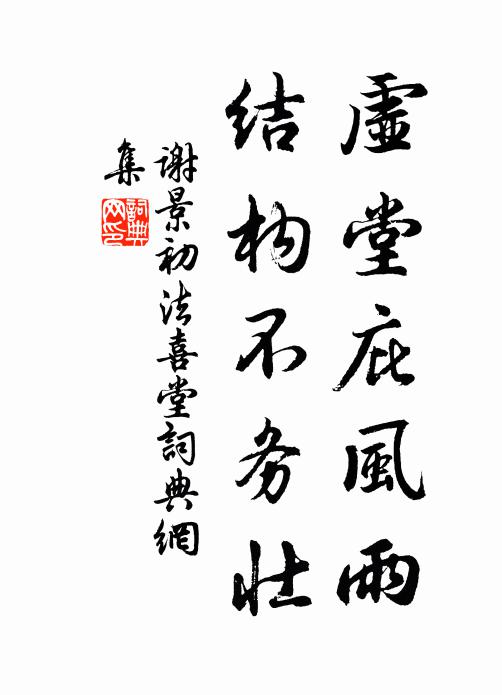 虛堂庇風雨
结构不务壮
謝景初法喜堂詞典網
集
詞典
网印